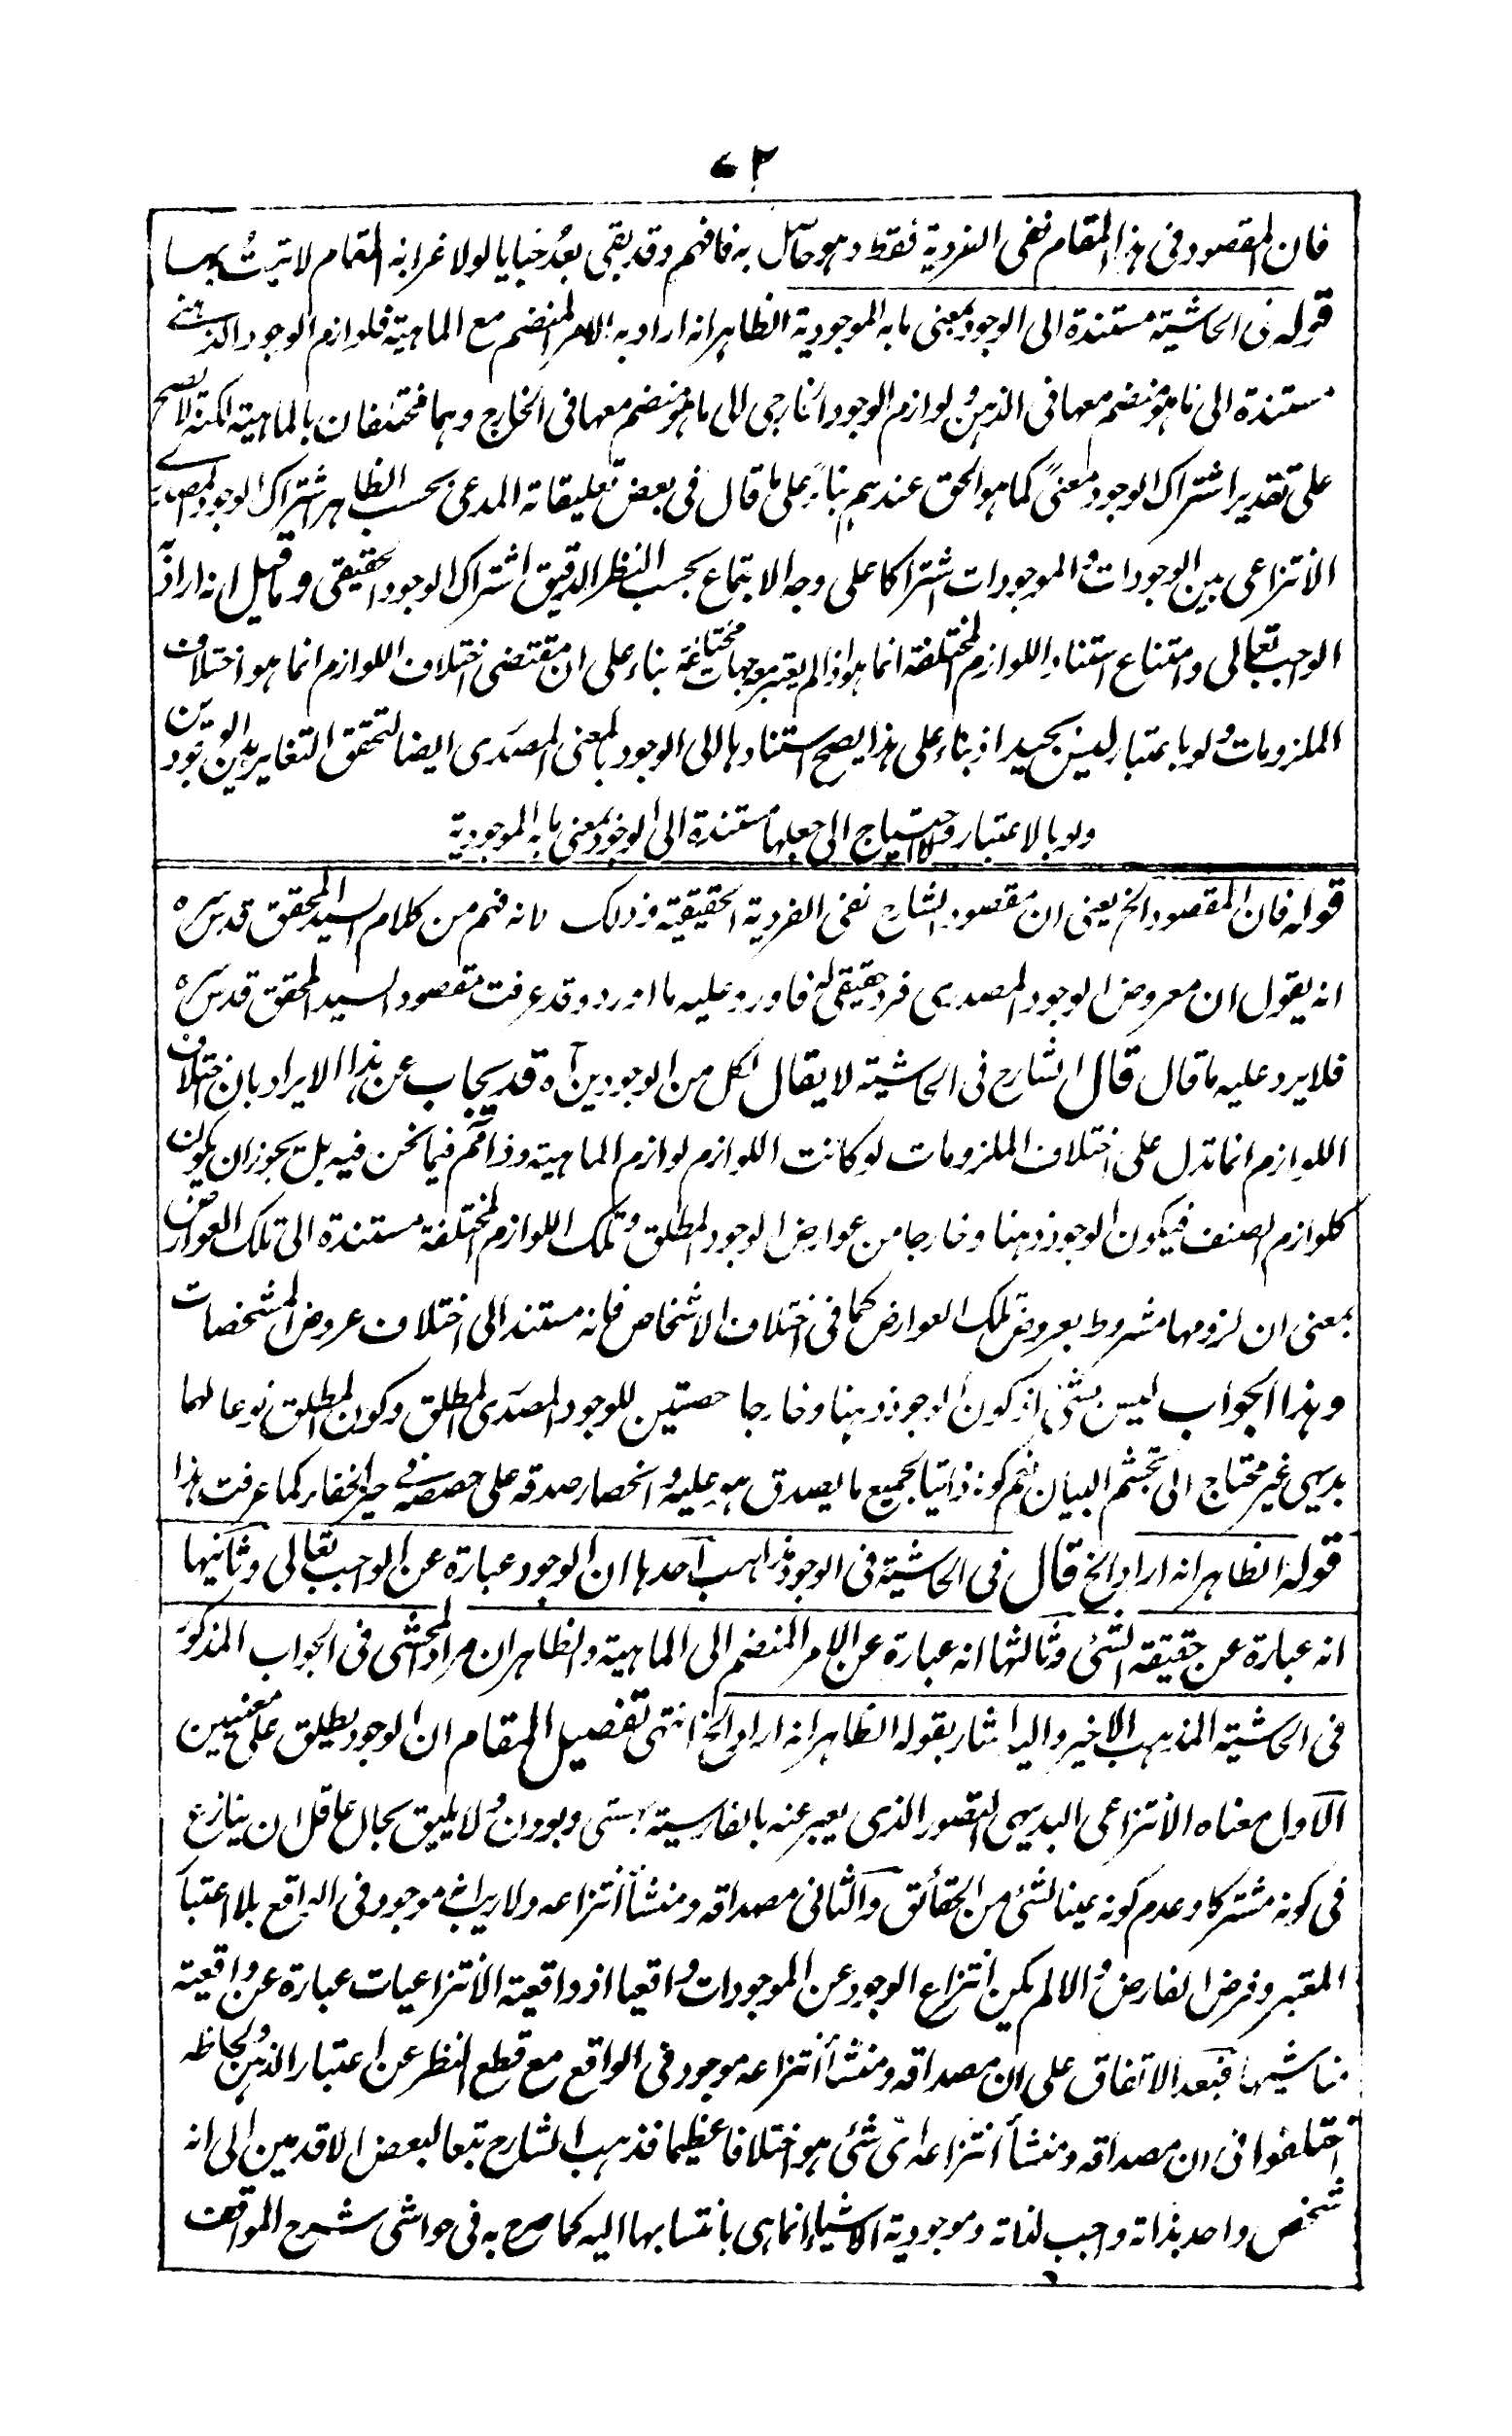 ٦٢
فان المقصود فى هذا المقام نفى الفردية فقط وهو حاصل به فافهم وقد بقى بعد خبايا لولا غرابة المقام لاتيت بها
قوله فى الحاشية مستندة الى الوجود بمعنى ما به الموجودية الظاهر انه اراد به الامر المنضم مع الماهية فلوازم الوجود الذهنى
مستندة الى ما هو منضم معها فى الذهن ولوازم الوجود الخارجى الى ما هو منضم معها فى الخارج وهما مختلفان بالماهية لكنه لا يصح
على تقدير اشتراك الوجود معنىً كما هو الحق عندهم بناءً على ما قال فى بعض تعليقاته المدعى بحسب الظاهر اشتراك الوجود المصدرى
الانتزاعى بين الوجودات والموجودات اشتراكا على وجه الاجتماع بحسب النظر الدقيق اشتراك الوجود الحقيقى وما قيل انه اراد به
الواجب تعالى وامتناع استناد اللوازم المختلفة انما هو اذا لم يعتبر معه جهات مختلفة بناء على ان مقتضى اختلاف اللوازم انما هو اختلاف
الملزومات ولو باعتبار ليس بجيد اذ بناء على هذا يصح استنادها الى الوجود بالمعنى المصدرى ايضا لتحقق التغاير بين الوجودين
ولو بالاعتبار ولا احتياج الى جعلها مستندة الى الوجود بمعنى ما به الموجودية
قوله فان المقصود الخ يعنى ان مقصود الشارح نفى الفردية الحقيقية وذلك لانه فهم من كلام السيد المحقق قدس سره
انه يقول ان معروض الوجود المصدرى فرد حقيقى له فاورد عليه ما اورد وقد عرفت مقصود السيد المحقق قدس سره
فلا يرد عليه ما قال قال الشارح فى الحاشية لا يقال لكل من الوجودين آه قد يجاب عن هذا الايراد بان اختلاف
اللوازم انما تدل على اختلاف الملزومات لو كانت اللوازم لوازم الماهية وذا لم يتم فيما نحن فيه بل يجوز ان يكون
كلوازم الصنف فيكون الوجود ذهنا وخارجا من عوارض الوجود المطلق وتلك اللوازم المختلفة مستندة الى تلك العوارض
بمعنى ان لزومها مشروط بعروض تلك العوارض كما فى اختلاف الاشخاص فانه مستند الى اختلاف عروض المشخصات
وهذا الجواب ليس بشئ اذ كون الوجود ذهنا وخارجا حصتين للوجود المصدرى المطلق وكون المطلق نوعا لهما
بديهى غير محتاج الى تجشم البيان نعم كونه ذاتيا لجميع ما يصدق هو عليه وانحصار صدقه على حصصه فى حيز الخفاء كما عرفت هذا
قوله الظاهر انه اراد الخ قال فى الحاشية فى الوجود مذاهب احدها ان الوجود عبارة عن الواجب تعالى وثانيها
انه عبارة عن حقيقة الشئ وثالثها انه عبارة عن الامر المنضم الى الماهية والظاهر ان مراد المحشى فى الجواب المذكور
فى الحاشية المذهب الاخير واليه اشار بقوله الظاهر انه اراد الخ انتهى تفصيل المقام ان الوجود يطلق على معنيين
الاول معناه الانتزاعى البديهى التصور الذى يعبر عنه بالفارسية بهستى وبودن ولا يليق بحال عاقل ان ينازع
فى كونه مشتركا وعدم كونه عينا لشئ من الحقائق والثانى مصداقه ومنشأ انتزاعه ولا ريب انه موجود فى الواقع بلا اعتبار
المعتبر وفرض الفارض والا لم يكن انتزاع الوجود عن الموجودات واقعيا اذ واقعية الانتزاعيات عبارة عن واقعية
مناشيها فبعد الاتفاق على ان مصداقه ومنشأ انتزاعه موجود فى الواقع مع قطع النظر عن اعتبار الذهن ولحاظه
اختلفوا فى ان مصداقه ومنشأ انتزاعه اى شئ هو اختلافا عظيما فذهب الشارح تبعا لبعض الاقدمين الى انه
شخص واحد بذاته واجب لذاته وموجودية الاشياء انما هى بانتسابها اليه كما صرح به فى حواشى شرح المواقف